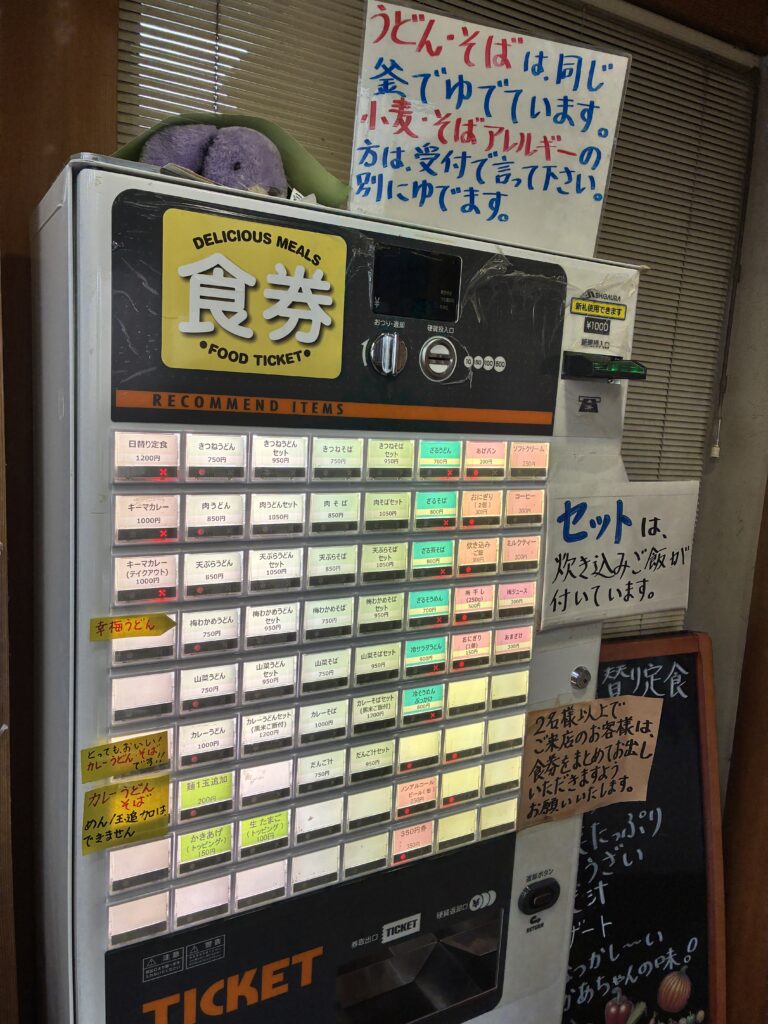 うどん・そばは、同じ
釜でゆでています。
小麦・そばアレルギーの
方は、受付で言って下さい。
別にゆでます。
DELICIOUS MEALS
食券
・FOOD TICKET・
おつり・返却
硬貨投入口
10 50 100 500
SHIBAURA
新札使用できます
¥1000
紙幣挿入口
RECOMMEND ITEMS
日替り定食
1200円
きつねうどん
750円
きつねうどん
セット
950円
きつねそば
750円
きつねそば
セット
950円
ざるうどん
700円
あげパン
200円
ソフトクリーム
キーマカレー
1000円
肉うどん
850円
肉うどんセット
1050円
肉そば
850円
肉そばセット
1050円
ざるそば
800円
おにぎり
(2個)
300円
コーヒー
300円
キーマカレー
(テイクアウト)
1000円
天ぷらうどん
850円
天ぷらうどん
セット
1050円
天ぷらそば
850円
天ぷらそば
セット
1050円
ざる茶そば
800円
炊き込み
ご飯
300円
ミルクティー
300円
幸梅うどん
梅わかめうどん
750円
梅わかめうどん
セット
950円
梅わかめそば
750円
梅わかめそば
セット
950円
ざるそうめん
700円
梅干し
(250g)
500円
梅ジュース
300円
山菜うどん
750円
山菜うどん
セット
950円
山菜そば
750円
山菜そば
セット
950円
冷サラダうどん
800円
おにぎり
(1個)
150円
あまざけ
300円
カレーうどん
1000円
カレーうどんセット
(黒米ご飯付)
1200円
カレーそば
1000円
カレーそばセット
(黒米ご飯付)
1200円
冷そうめん
ぶっかけ
800円
とっても、おいしい!
カレーうどん、そば
です!!
麺1玉追加
200円
だんご汁
750円
だんご汁セット
950円
ノンアルコール
ビール(缶)
カレーうどん
そば
めん1玉追加は、
できません
かきあげ
(トッピング)
150円
生たまご
(トッピング)
100円
350円券
350円
セットは、
炊き込みご飯が
付いています。
2名様以上で
ご来店のお客様は、
食券をまとめてお出し
いただきますよう
お願いいたします。
替り定食
たっぷり
うざい
汁
ザート
かあちゃんの味!
返却ボタン
RETURN
注意
警告
券取出口
TICKET
硬貨返却口
TICKET